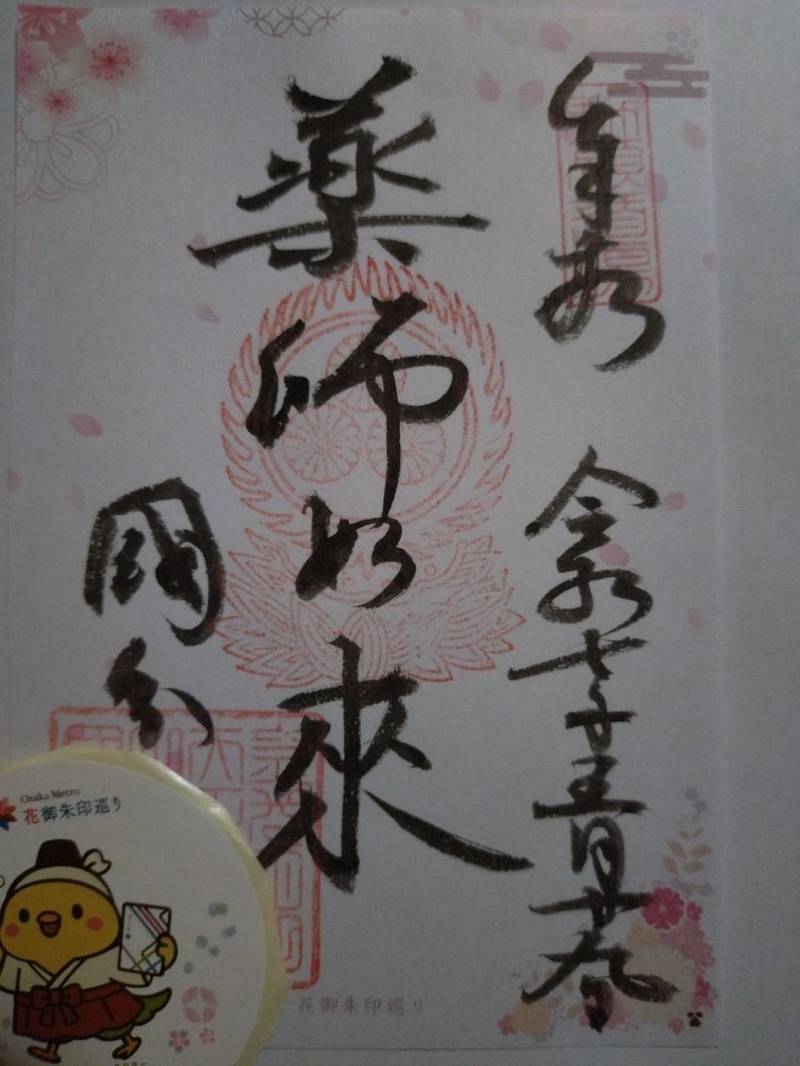 奉拝
令和七年五月廿九日
薬師如来
國分
Osaka Metro
花御朱印巡り
花御朱印巡り